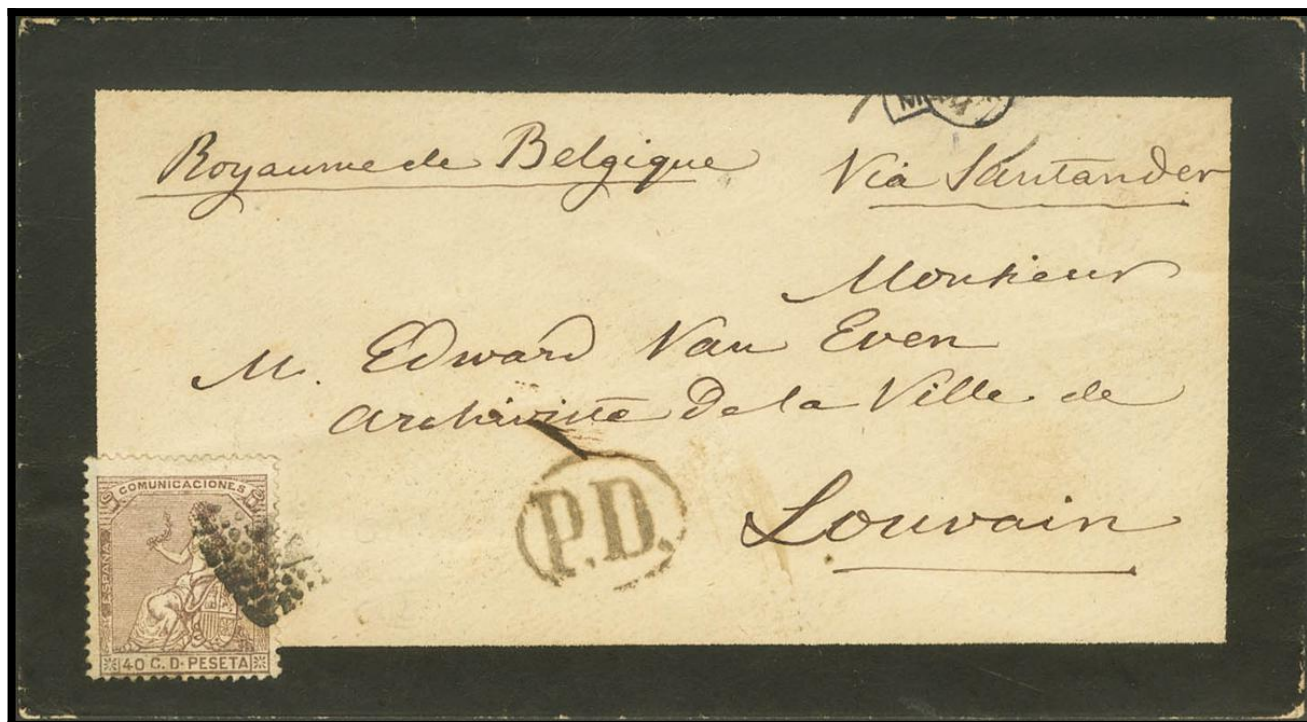 Royaume de Belgique Via Santander
Monsieur
M. Edward Van Even
Archiviste de la Ville de
Louvain
P.D.
COMUNICACIONES
ESPAÑA
40 C. D. PESETA